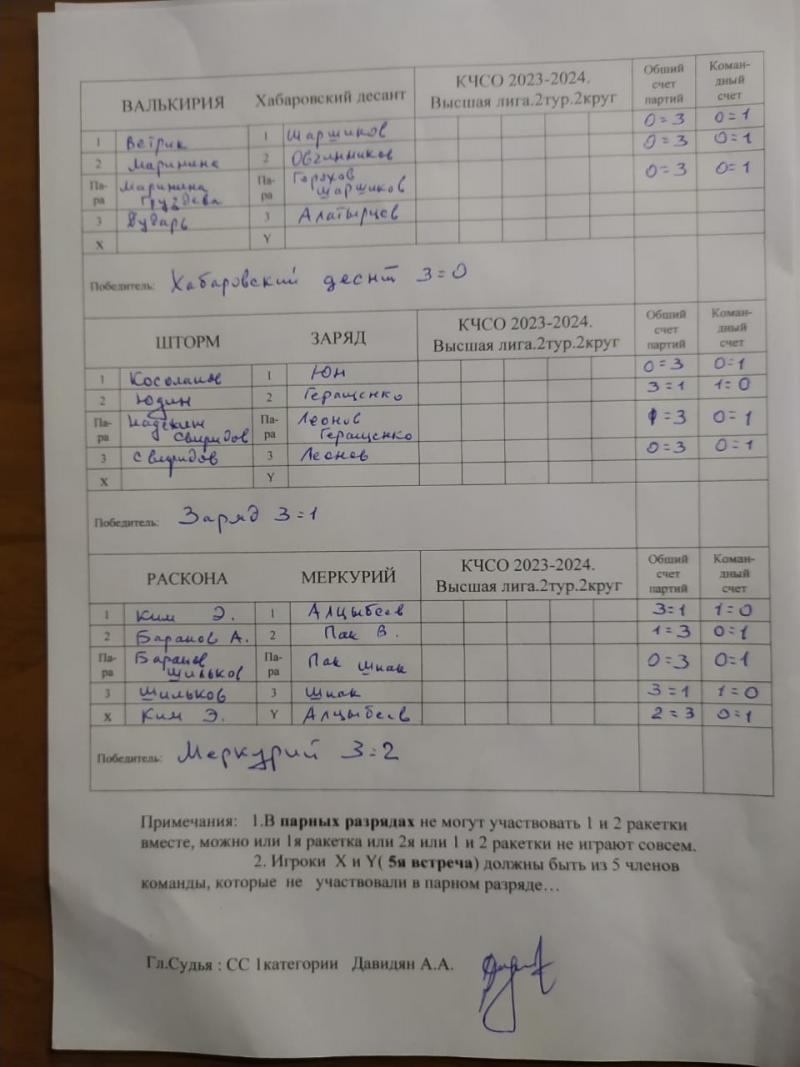 ВАЛЬКИРИЯ Хабаровский десант КЧСО 2023-2024. Высшая лига.2тур.2круг Общий счет партий Коман-дный счет
1 Ветрик 1 Шаршиков 0=3 0=1
2 Маринина 2 Овчинников 0=3 0=1
Па-ра Маринина Груздева Па-ра Горохов Шаршиков 0=3 0=1
3 Бударь 3 Алатырцев
X Y
Победитель: Хабаровский деснт 3=0
ШТОРМ ЗАРЯД КЧСО 2023-2024. Высшая лига.2тур.2круг Общий счет партий Коман-дный счет
1 Косолапов 1 Юн 0=3 0=1
2 Юдин 2 Геращенко 3=1 1=0
Па-ра Свиридов Па-ра Леонов Геращенко 1=3 0=1
3 Свиридов 3 Леонов 0=3 0=1
X Y
Победитель: Заряд 3=1
РАСКОНА МЕРКУРИЙ КЧСО 2023-2024. Высшая лига.2тур.2круг Общий счет партий Коман-дный счет
1 Ким Э. 1 Алцыбеев 3=1 1=0
2 Баранов А. 2 Пак В. 1=3 0=1
Па-ра Баранов Шильков Па-ра Пак Шпак 0=3 0=1
3 Шильков 3 Шпак 3=1 1=0
X Ким Э. Y Алцыбеев 2=3 0=1
Победитель: Меркурий 3=2
Примечания: 1.В парных разрядах не могут участвовать 1 и 2 ракетки
вместе, можно или 1я ракетка или 2я или 1 и 2 ракетки не играют совсем.
2. Игроки X и Y( 5я встреча) должны быть из 5 членов
команды, которые не участвовали в парном разряде…
Гл.Судья : СС 1категории Давидян А.А.